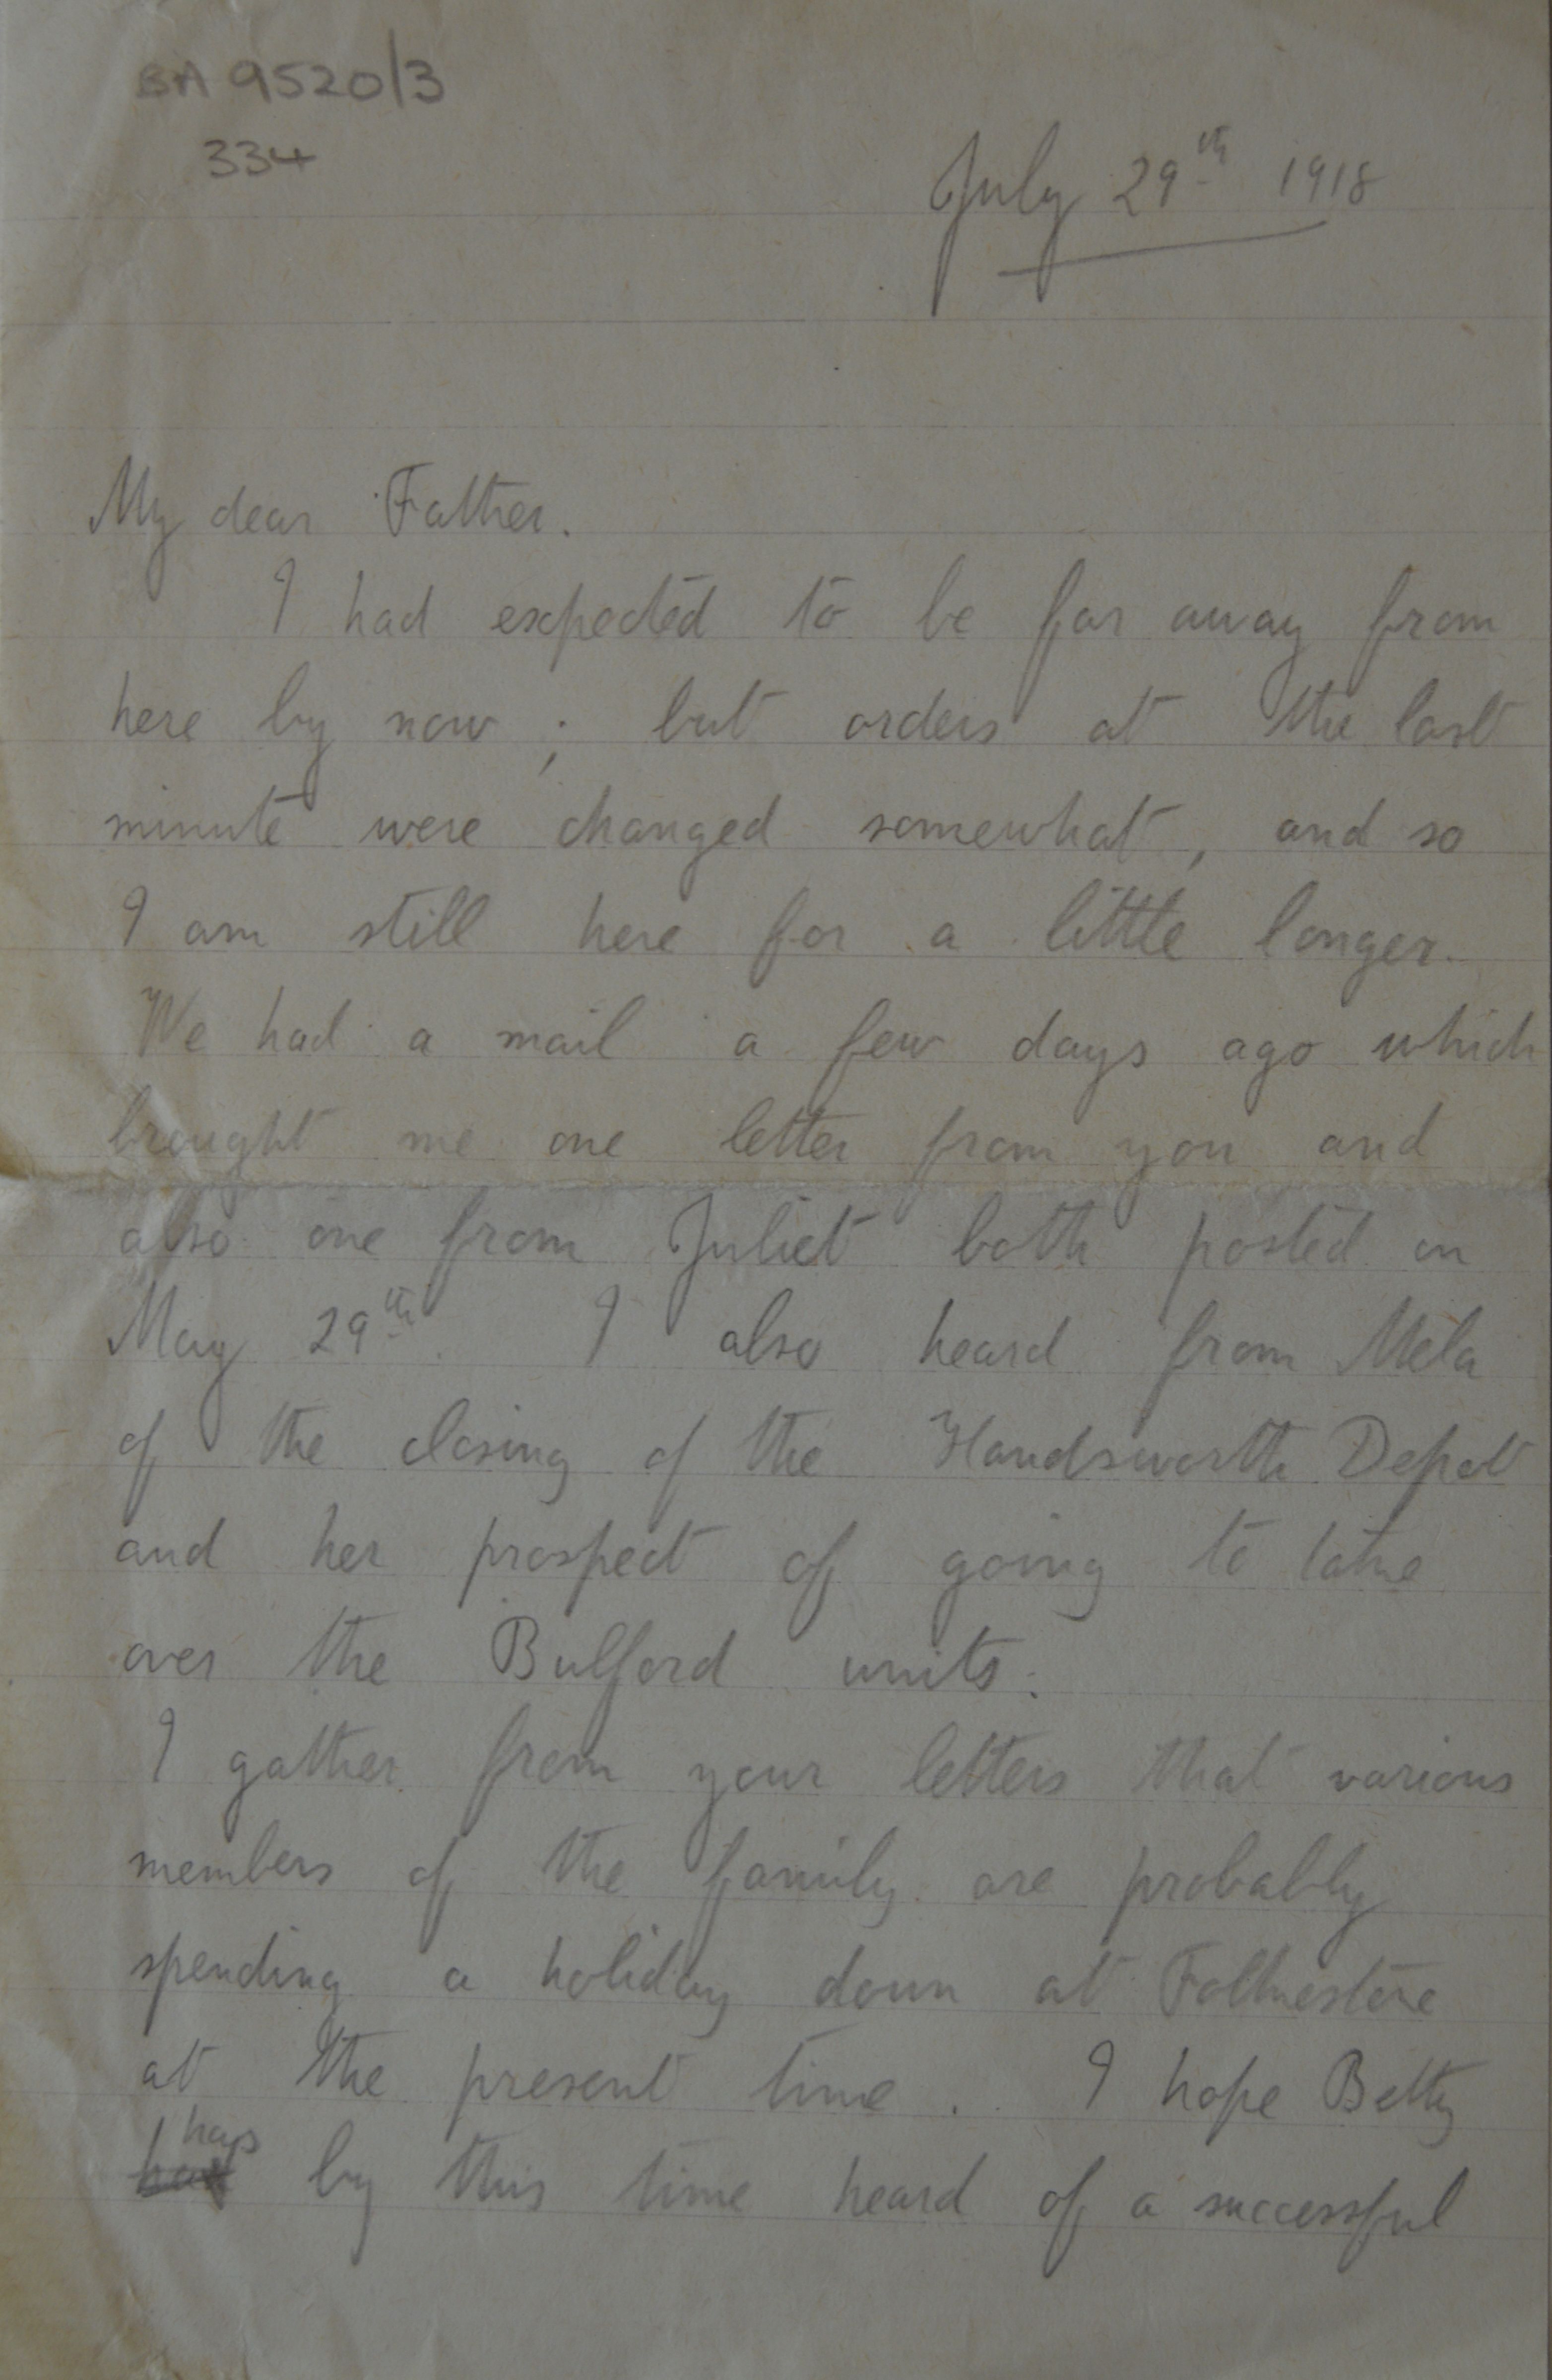 BA 9520/3
334
July 29th 1918
My dear Father.
I had expected to be far away from
here by now ; but orders at the last
minute were changed somewhat, and so
I am still here for a little longer.
We had a mail a few days ago which
brought me one letter from you and
also one from Juliet both posted on
May 29th. I also heard from Mela
of the closing of the Handsworth Depot
and her prospect of going to take
over the Bulford units.
I gather from your letters that various
members of the family are probably
spending a holiday down at Folkestone
at the present time. I hope Betty
has
by this time heard of a successful